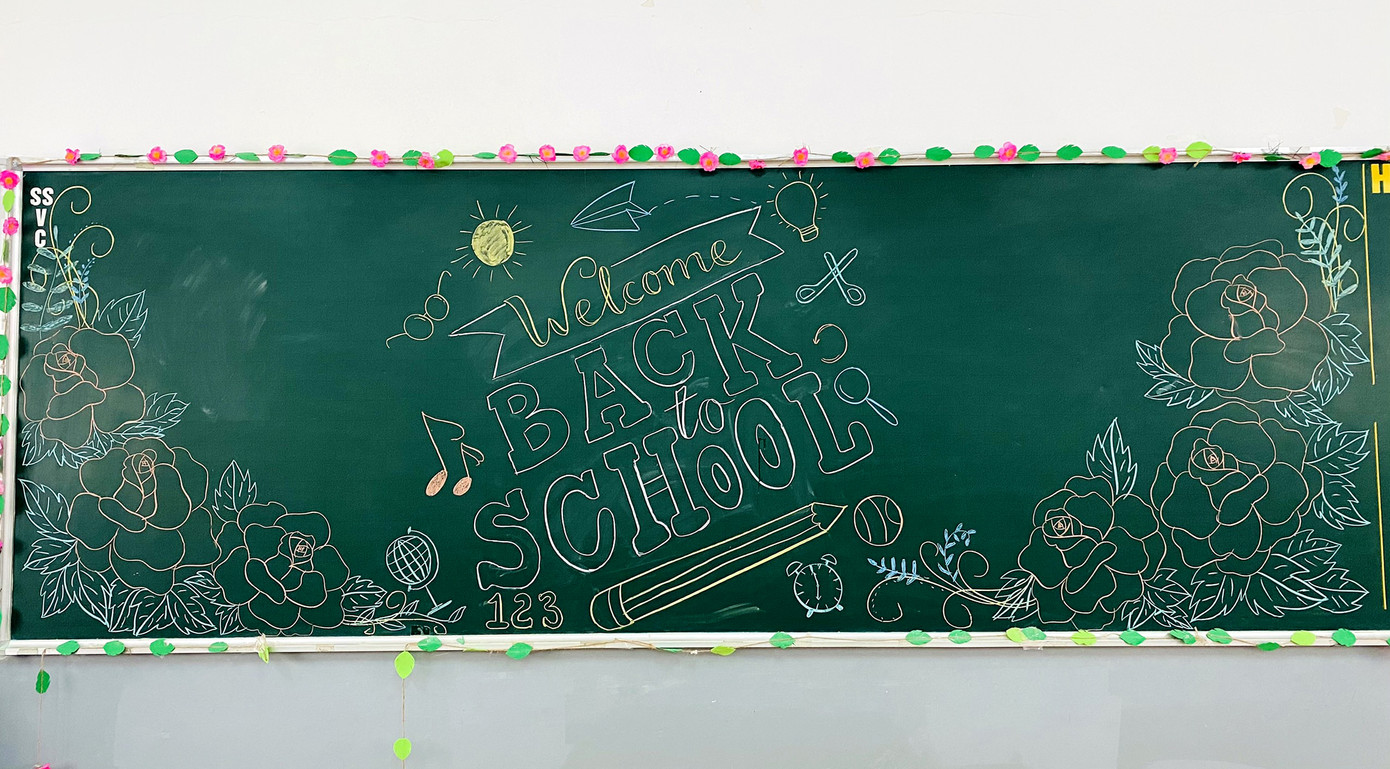 SS
V
C
H
Welcome
BACK
to
SCHOOL
123